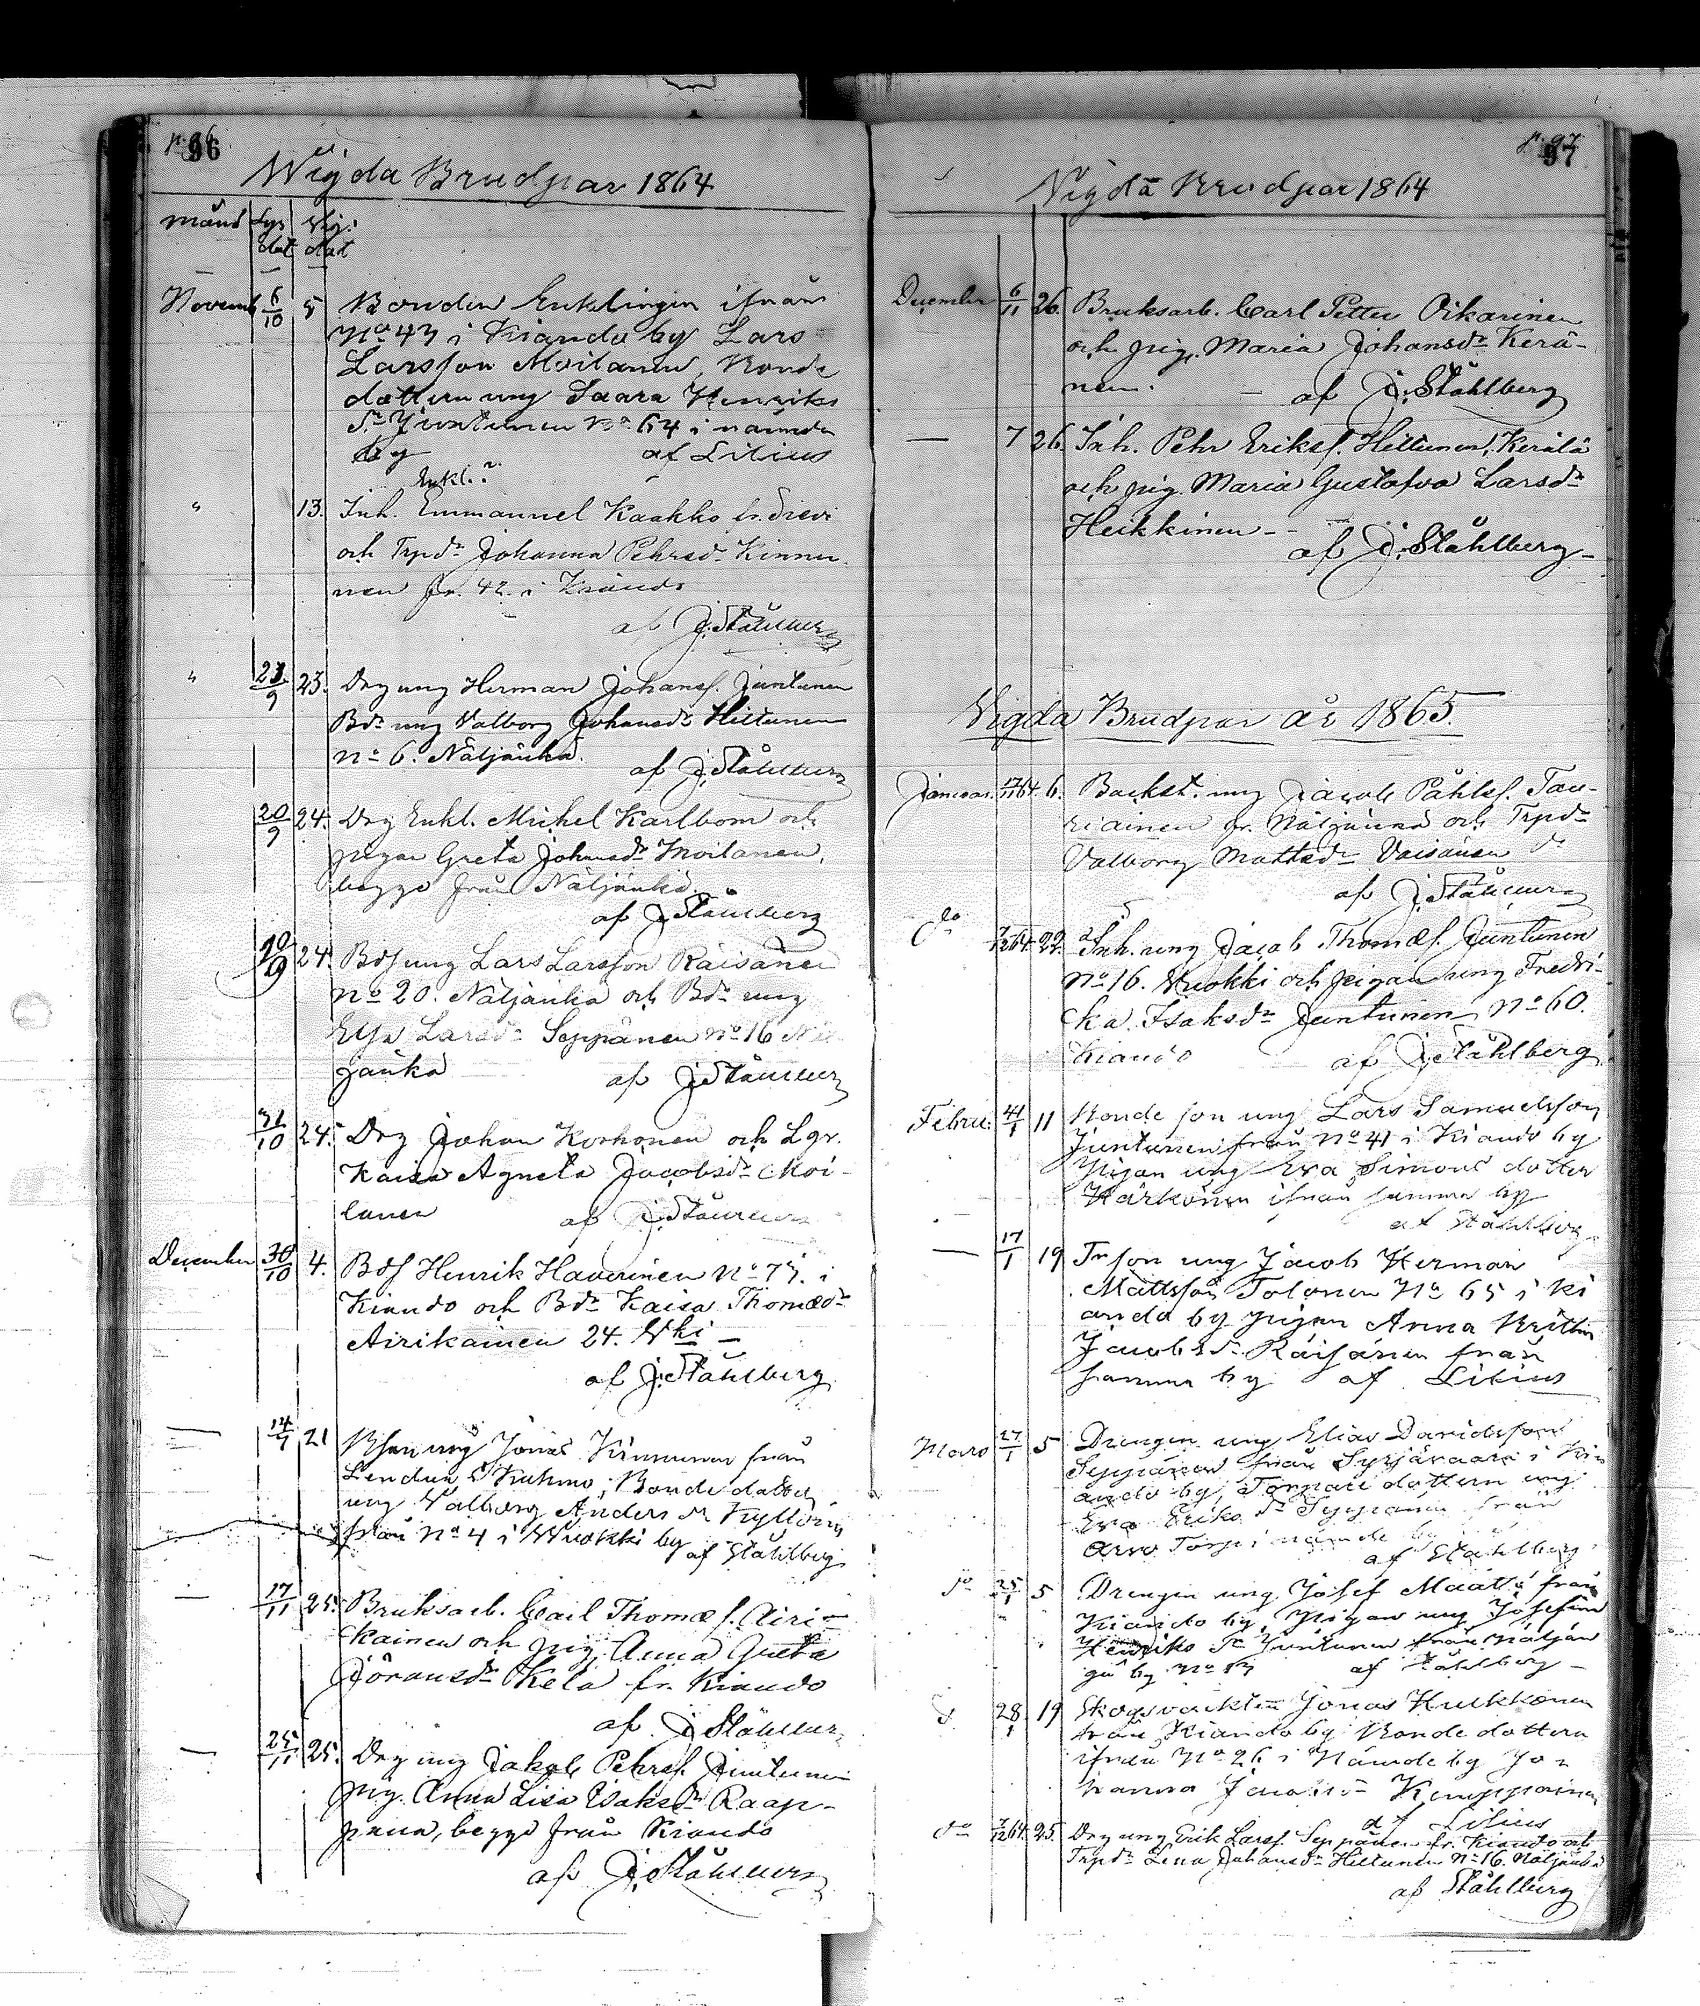 p. 96
96
Wigda Brudpar 1864
månd Lys dat Vig. dat
Novemb 6/10 5 Bonden Enklingen ifrån
No 47 i Kiando by Lars
Larsson Moilanen, Bonde
dottern ung Saara Henriks
dr Juntunen No 64 i nämnde
by af Lilius
Enkl.
" 13. Inh. Emmanuel Kaakko fr. Sievi
och Trpdr Johanna Pehrsdr Kinnu
nen fr. 42 i Kiando
af J. Ståhlberg
" 23/9 23. Drg ung Herman Johansf. Juntunen
Bdr ung Valborg Johansdr Hiltunen
No 6. Näljänkä.
af J. Ståhlberg
20/9 24. Drg Enkl. Michel Karlbom och
pigan Greta Johansdr Moilanen,
begge från Näljänkä.
af J. Ståhlberg
24. Bds ung Lars Larsson Räisänen
No 20. Näljänkä och Bdr ung
Elsa Larsdr Seppänen No 16 Näl
jänkä af J. Ståhlberg
31/10 24. Drg Johan Korhonen och Lgr.
Kaisa Agneta Jacobsdr Moi-
lanen af J. Ståhlberg
December 30/10 4. Bds Henrik Haverinen No 73. i
Kiando och Bdr Kaisa Thomædr
Airikainen 24. Wki –
af J. Ståhlberg
— 21 ung Jonas Kinnunen från
Kuhmo; Bonde dotter
ung Valborg Anders dr Kyllönen
från No 4 i Wuokki by
af Ståhlberg
— 17/11 25. Bruksarb. Carl Thomæs. Airi-
kainen och pig. Anna Greta
Göransdr Kela fr. Kiando
af J. Ståhlberg
— 25/11 25. Drg ung Jakob Pehrsf. Juntunen
pig. Anna Lisa Isaksdr Raap-
pana, begge från Kiando
af J. Ståhlberg
p. 97
97
Vigda Brudpar 1864
December 6/11 26. Bruksarb. Carl Petter Oikarinen
och pig. Maria Johansdr Kerä-
nen. – af J. Ståhlberg
— 7 26. Inh. Pehr Eriksf. Hiltunen, Kerälä
och pig. Maria Gustafva Larsdr
Heikkinen –
af J. Ståhlberg –
Vigda Brudpar år 1865.
Januar. 6. Backst. ung Jacob Påhlsf. Tau-
riainen fr. Näljänkä och Trpdr
Valborg Mattsdr Väisänen do
af J. Ståhlberg
do 22. Inh. ung Jacob Thomæf. Juntunen
No 16. Vuokki och pigan ung Fredri-
ka Isaksdr Juntunen No 60.
Kiando af J. Ståhlberg
Febru. 11 Bonde son ung Lars Samuelsson
Juntunen från No 41 i Kiando by
Pigan ung Eva Simons dotter
Härkönen ifrån samma by
af Ståhlberg
— 17/1 19 Tr son ung Jacob Herman
Mattsson Tolonen No 65 i Ki
ando by pigan Anna Brita
Jacobsdr Räisänen från
samma by af Lilius
Mars 27/1 5 Drengen ung Elias Davidsson
Seppänen från Syrjävaara i Ki
ando by, Torpare dottern ung
Eva Eriks dr Seppänen från
Arvo Torp i nämnde by
af Ståhlberg
do 25/1 5 Drengen ung Josef Määttä från
Kiando by, Pigan ung Josefina
Henriks dr Juntunen från Näljän
gä by No 17 af Ståhlberg –
d. 28/1 19 Skogsvacktar Jonas Hukkonen
från Kiando by Bonde dottern
ifrån No 26 i Nämde by Jo
hanna Jacobs dr Kemppainen
af Lilius
do 7/12 64. 25. Drg ung Erik Larsf. Seppänen fr. Kiando och
Trpdr Lena Johansdr Hiltunen No 16. Näljänkä
af Ståhlberg